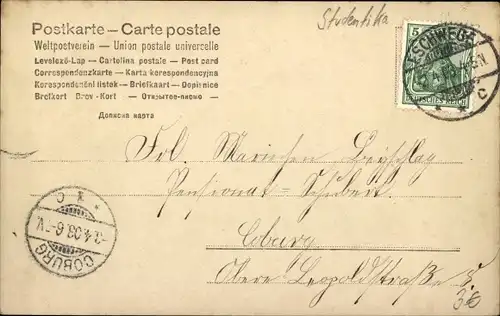 Studentika
Postkarte – Carte postale
Weltpostverein – Union postale universelle
Levelező-Lap – Cartolina postale – Post card
Correspondenzkarte – Karta korespondencyjna
Korespondenční lístek – Briefkaart – Dopisnice
Brefkort Brev-Kort – Открытое письмо –
Дописна карта
5
ESCHWEGE
C
DEUTSCHES REICH
Frl. Mariechen Beyschlag
Pensionat = Schubert.
Coburg
Obere Leopoldstraße 5.
36
C
COBURG